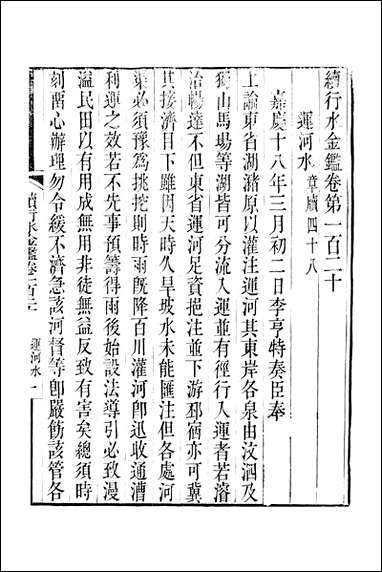 續行水金鑑卷第一百二十
運河水 章牘四十八
嘉慶十八年三月初二日李亨特奏臣奉
上諭東省湖瀦原以灌注運河其東岸各泉由汶泗及
獨山馬場等湖皆可分流入運並有徑行入運者若溶
治暢達不但東省運河足資挹注並下游邳宿亦可冀
其接濟目下雖因天時久旱坡水未能匯注但各處河
渠必須豫爲挑挖則時雨旣降百川灌河卽迅收通漕
利運之效若不先事預籌得雨後始設法導引必致漫
溢民田以有用成無用非徒無益反致有害矣總須時
刻留心辦理勿令緩不濟急該河督等卽嚴飭該管各
續行水金鑑卷一百二十 運河水 一